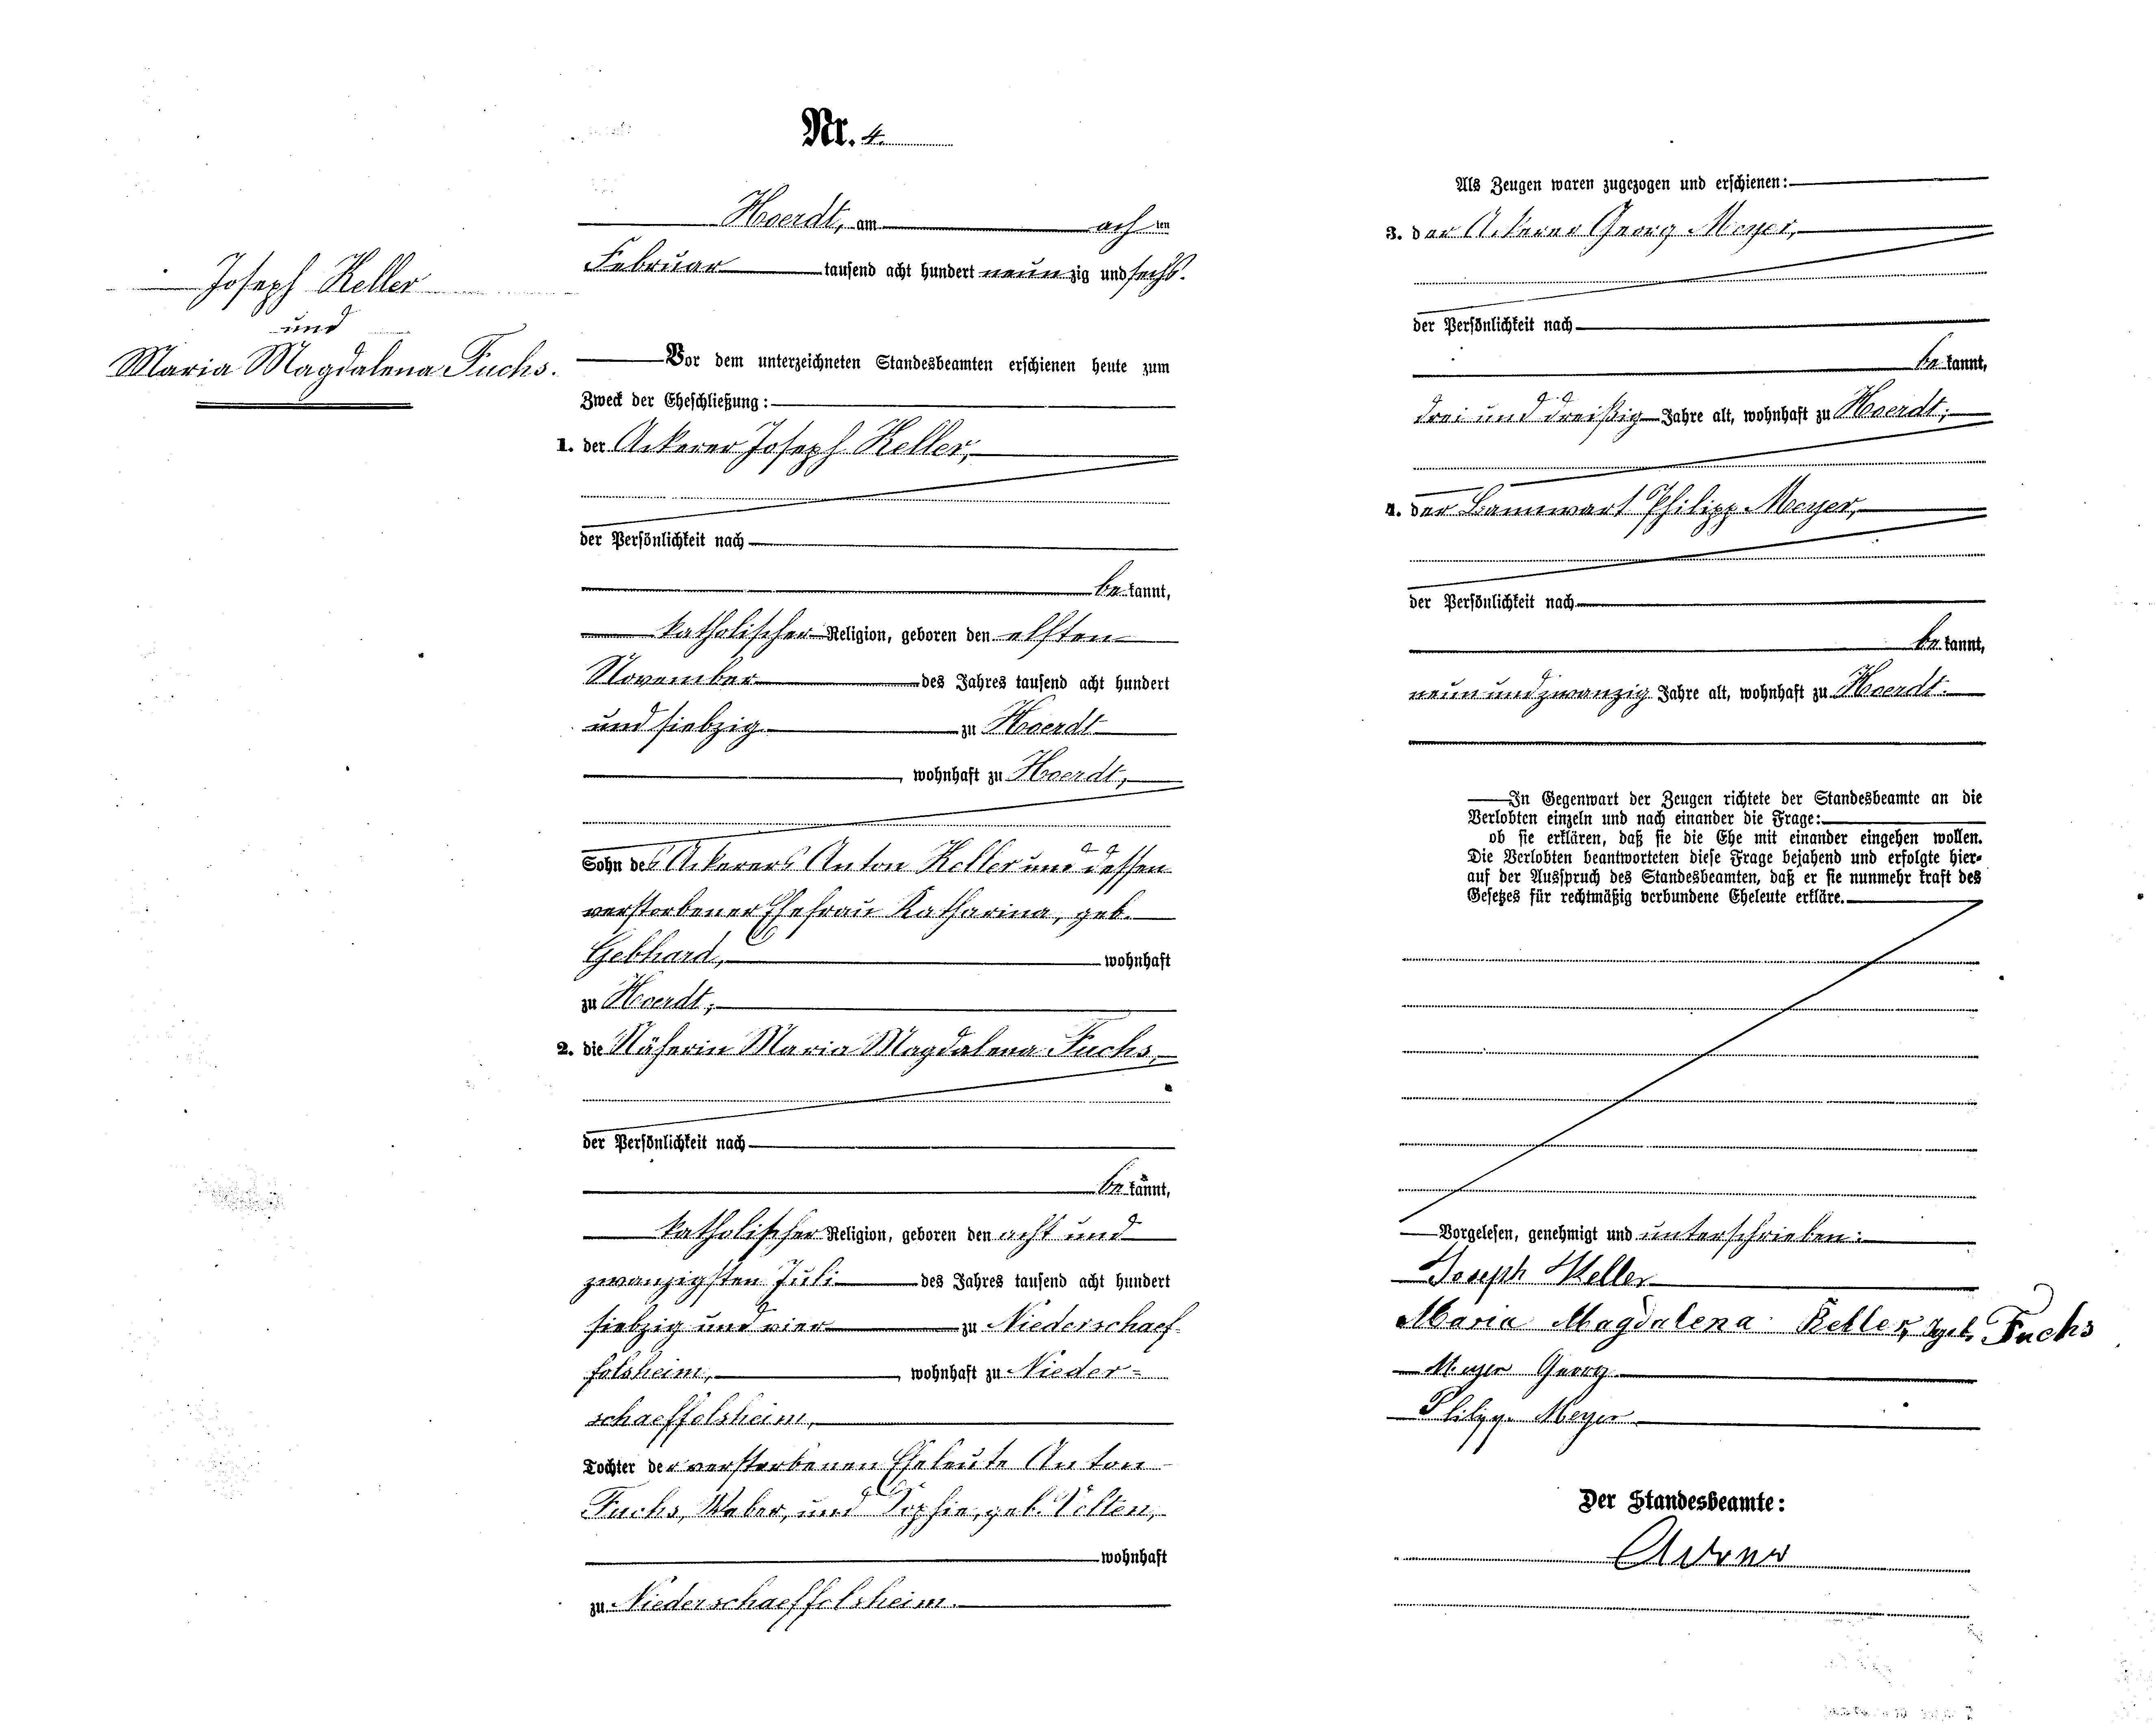 Nr. 4.
Joseph Keller
und
Maria Magdalena Fuchs.
Hoerdt, am achten
Februar tausend acht hundert neunzig und sechs.
Vor dem unterzeichneten Standesbeamten erschienen heute zum
Zweck der Eheschließung:
1. der Ackerer Joseph Keller,
der Persönlichkeit nach
bekannt,
katholischer Religion, geboren den elften
November des Jahres tausend acht hundert
und siebzig zu Hoerdt
, wohnhaft zu Hoerdt,
Sohn des Ackerers Anton Keller und dessen
verstorbener Ehefrau Katharina, geb.
Gebhard, wohnhaft
zu Hoerdt;
2. die Näherin Maria Magdalena Fuchs,
der Persönlichkeit nach
bekannt,
katholischer Religion, geboren den acht und
zwanzigsten Juli des Jahres tausend acht hundert
siebzig und vier zu Niederschaef-
folsheim, , wohnhaft zu Nieder-
schaeffolsheim,
Tochter der verstorbenen Eheleute Anton
Fuchs, Weber, und Sophie, geb. Velten,
wohnhaft
zu Niederschaeffolsheim.
Als Zeugen waren zugezogen und erschienen:
3. der Ackerer Georg Meyer,
der Persönlichkeit nach
bekannt,
drei und dreißig Jahre alt, wohnhaft zu Hoerdt;
4. der Bannwart Philipp Meyer,
der Persönlichkeit nach
bekannt,
neun und zwanzig Jahre alt, wohnhaft zu Hoerdt.
In Gegenwart der Zeugen richtete der Standesbeamte an die
Verlobten einzeln und nach einander die Frage:
ob sie erklären, daß sie die Ehe mit einander eingehen wollen.
Die Verlobten beantworteten diese Frage bejahend und erfolgte hier-
auf der Ausspruch des Standesbeamten, daß er sie nunmehr kraft des
Gesetzes für rechtmäßig verbundene Eheleute erkläre.
Vorgelesen, genehmigt und unterschrieben:
Joseph Keller
Maria Magdalena Keller, geb. Fuchs
Meyer Georg
Philipp Meyer
Der Standesbeamte: